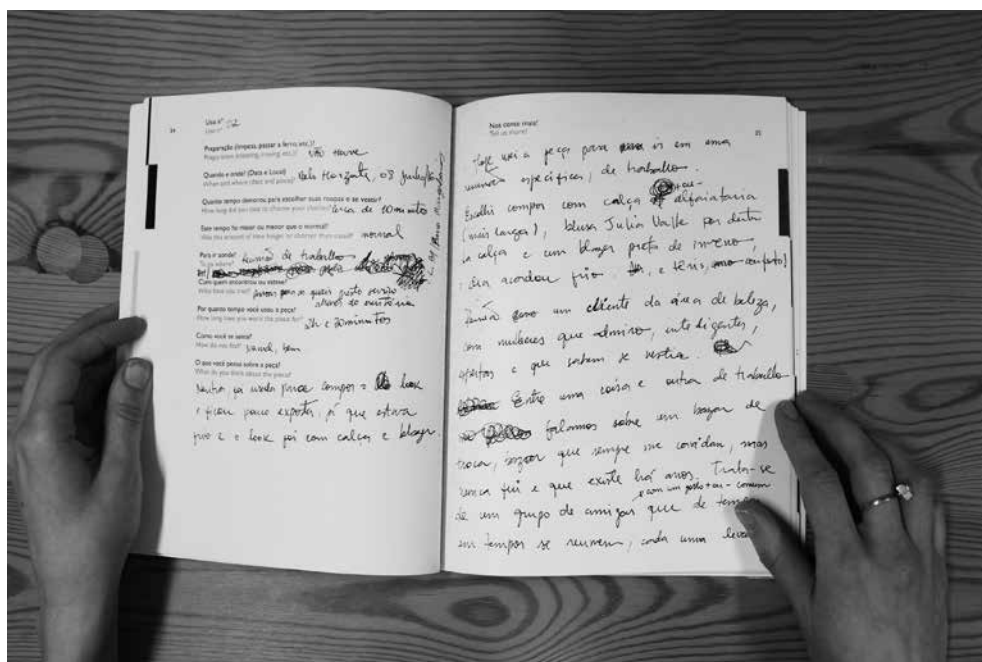 24
Uso nº 02
Use nº
Preparação (limpeza, passar a ferro, etc.)? não houve
Preparation (cleaning, ironing, etc.)?
Quando e onde? (Data e Local) Belo Horizonte, 03 junho/16
When and where (date and place)?
Quanto tempo demorou para escolher suas roupas e se vestir?
How long did you take to choose your clothes? cerca de 10 minutos
Esse tempo foi maior ou menor que o normal? normal
Was this amount of time longer or shorter than usual?
Para ir aonde? reunião de trabalho
To go where?
Com quem encontrou ou esteve?
Who have you met? pessoas para as quais presto serviço
Por quanto tempo você usou a peça?
How long have you worn the piece for? 2h e 30 minutos
Como você se sentiu?
How do you feel? normal, bem
O que você pensa sobre a peça?
What do you think about the piece?
neutra, já usada para compor o look
e ficou pouco exposta, já que estava
frio e o look foi com calça e blazer.
Nos conte mais!
Tell us more!
25
Hoje usei a peça para ir em uma
reunião específica, de trabalho.
Escolhi compor com calça alfaiataria
(mais larga), blusa Julia Valle por dentro
da calça e um blazer preto de inverno,
o dia acordou frio. e tênis, conforto!
Reunião um cliente da área de beleza,
com mulheres que admiro, inteligentes,
espertas e que sabem se vestir.
Entre uma coisa e outra de trabalho
falamos sobre um bazar de
troca, bazar que sempre me convidam, mas
nunca fui e que existe há anos. Trata-se
e com um gosto + ou - comum
de um grupo de amigas que de tempos
em tempos se reunem, cada uma leva